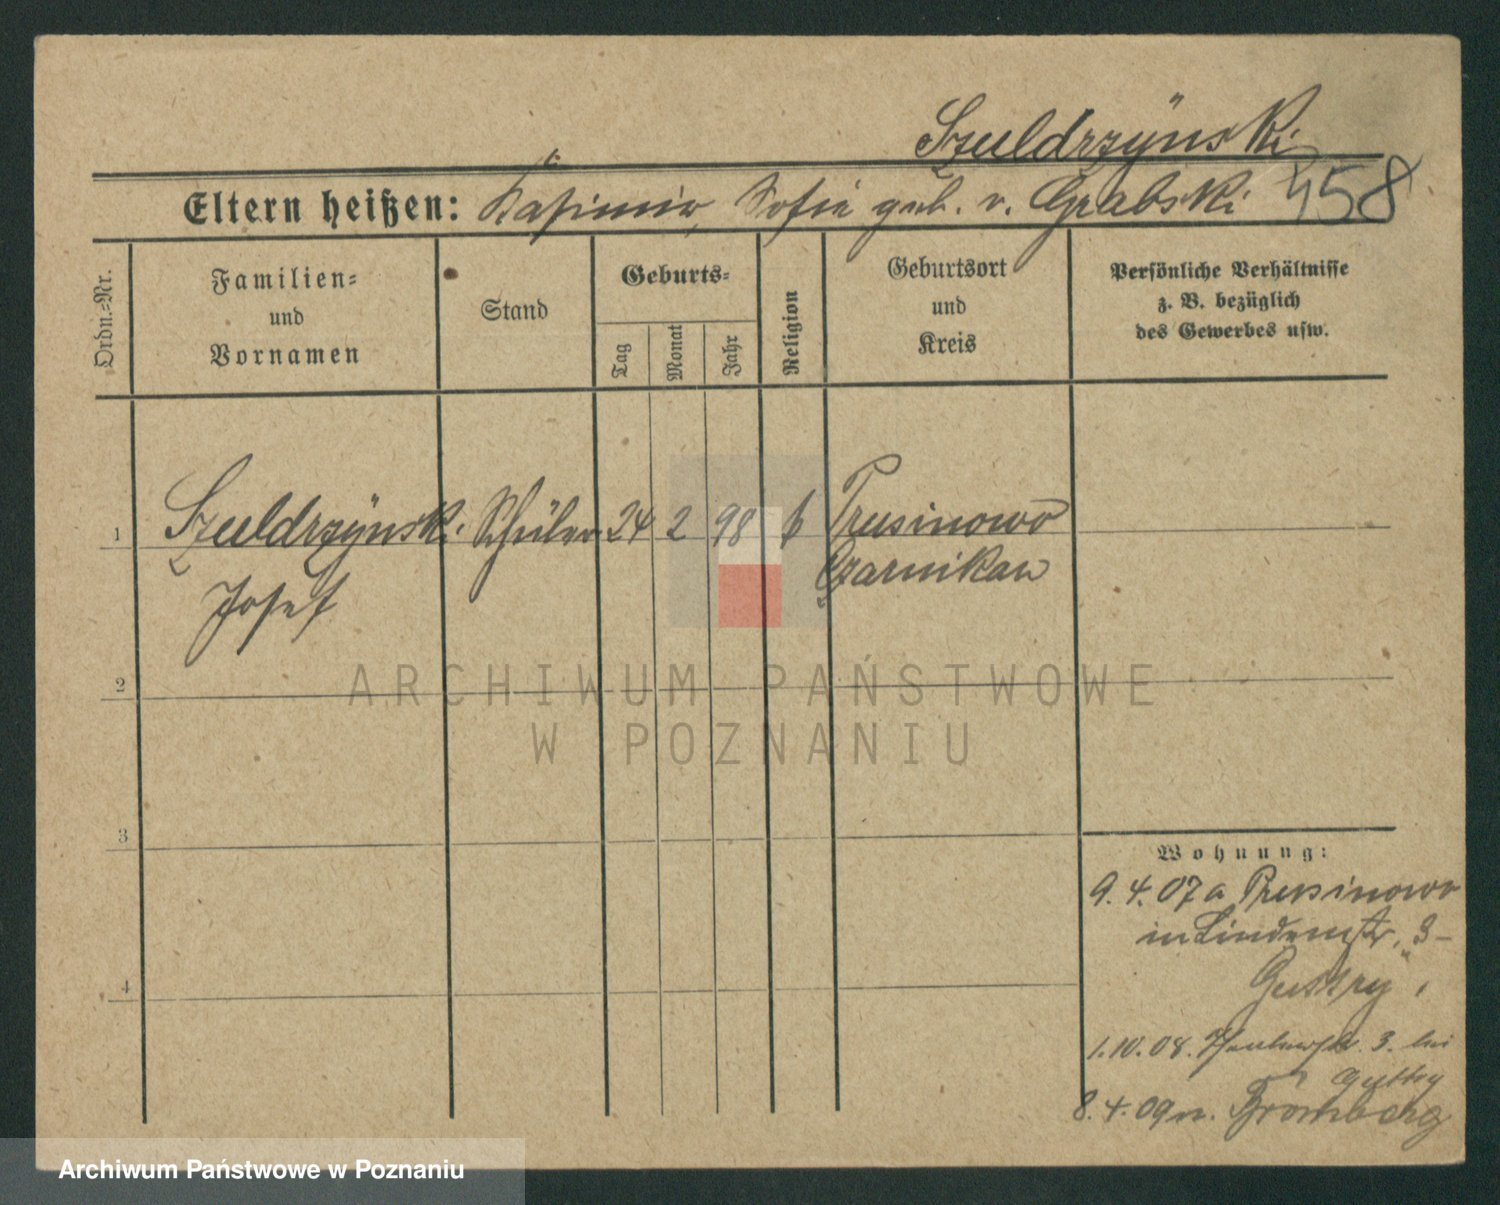 Szuldrzÿnski
Eltern heißen: Kasimir, Sofie geb. v. Grabski 458
Ordn.=Nr.
Familien=
und
Vornamen
Stand
Geburts=
Tag
Monat
Jahr
Religion
Geburtsort
und
Kreis
Persönliche Verhältnisse
z. B. bezüglich
des Gewerbes usw.
1 Szuldrzÿnski Schüler 24 2 98 k Prusinowo
Josef Czarnikau
2
ARCHIWUM PAŃSTWOWE
W POZNANIU
3
Wohnung:
9. 4. 07 a Prusinowo
in Lindenstr. 3
4
1.10.08. 3. bei
8.4.09 n. Bromberg
Archiwum Państwowe w Poznaniu